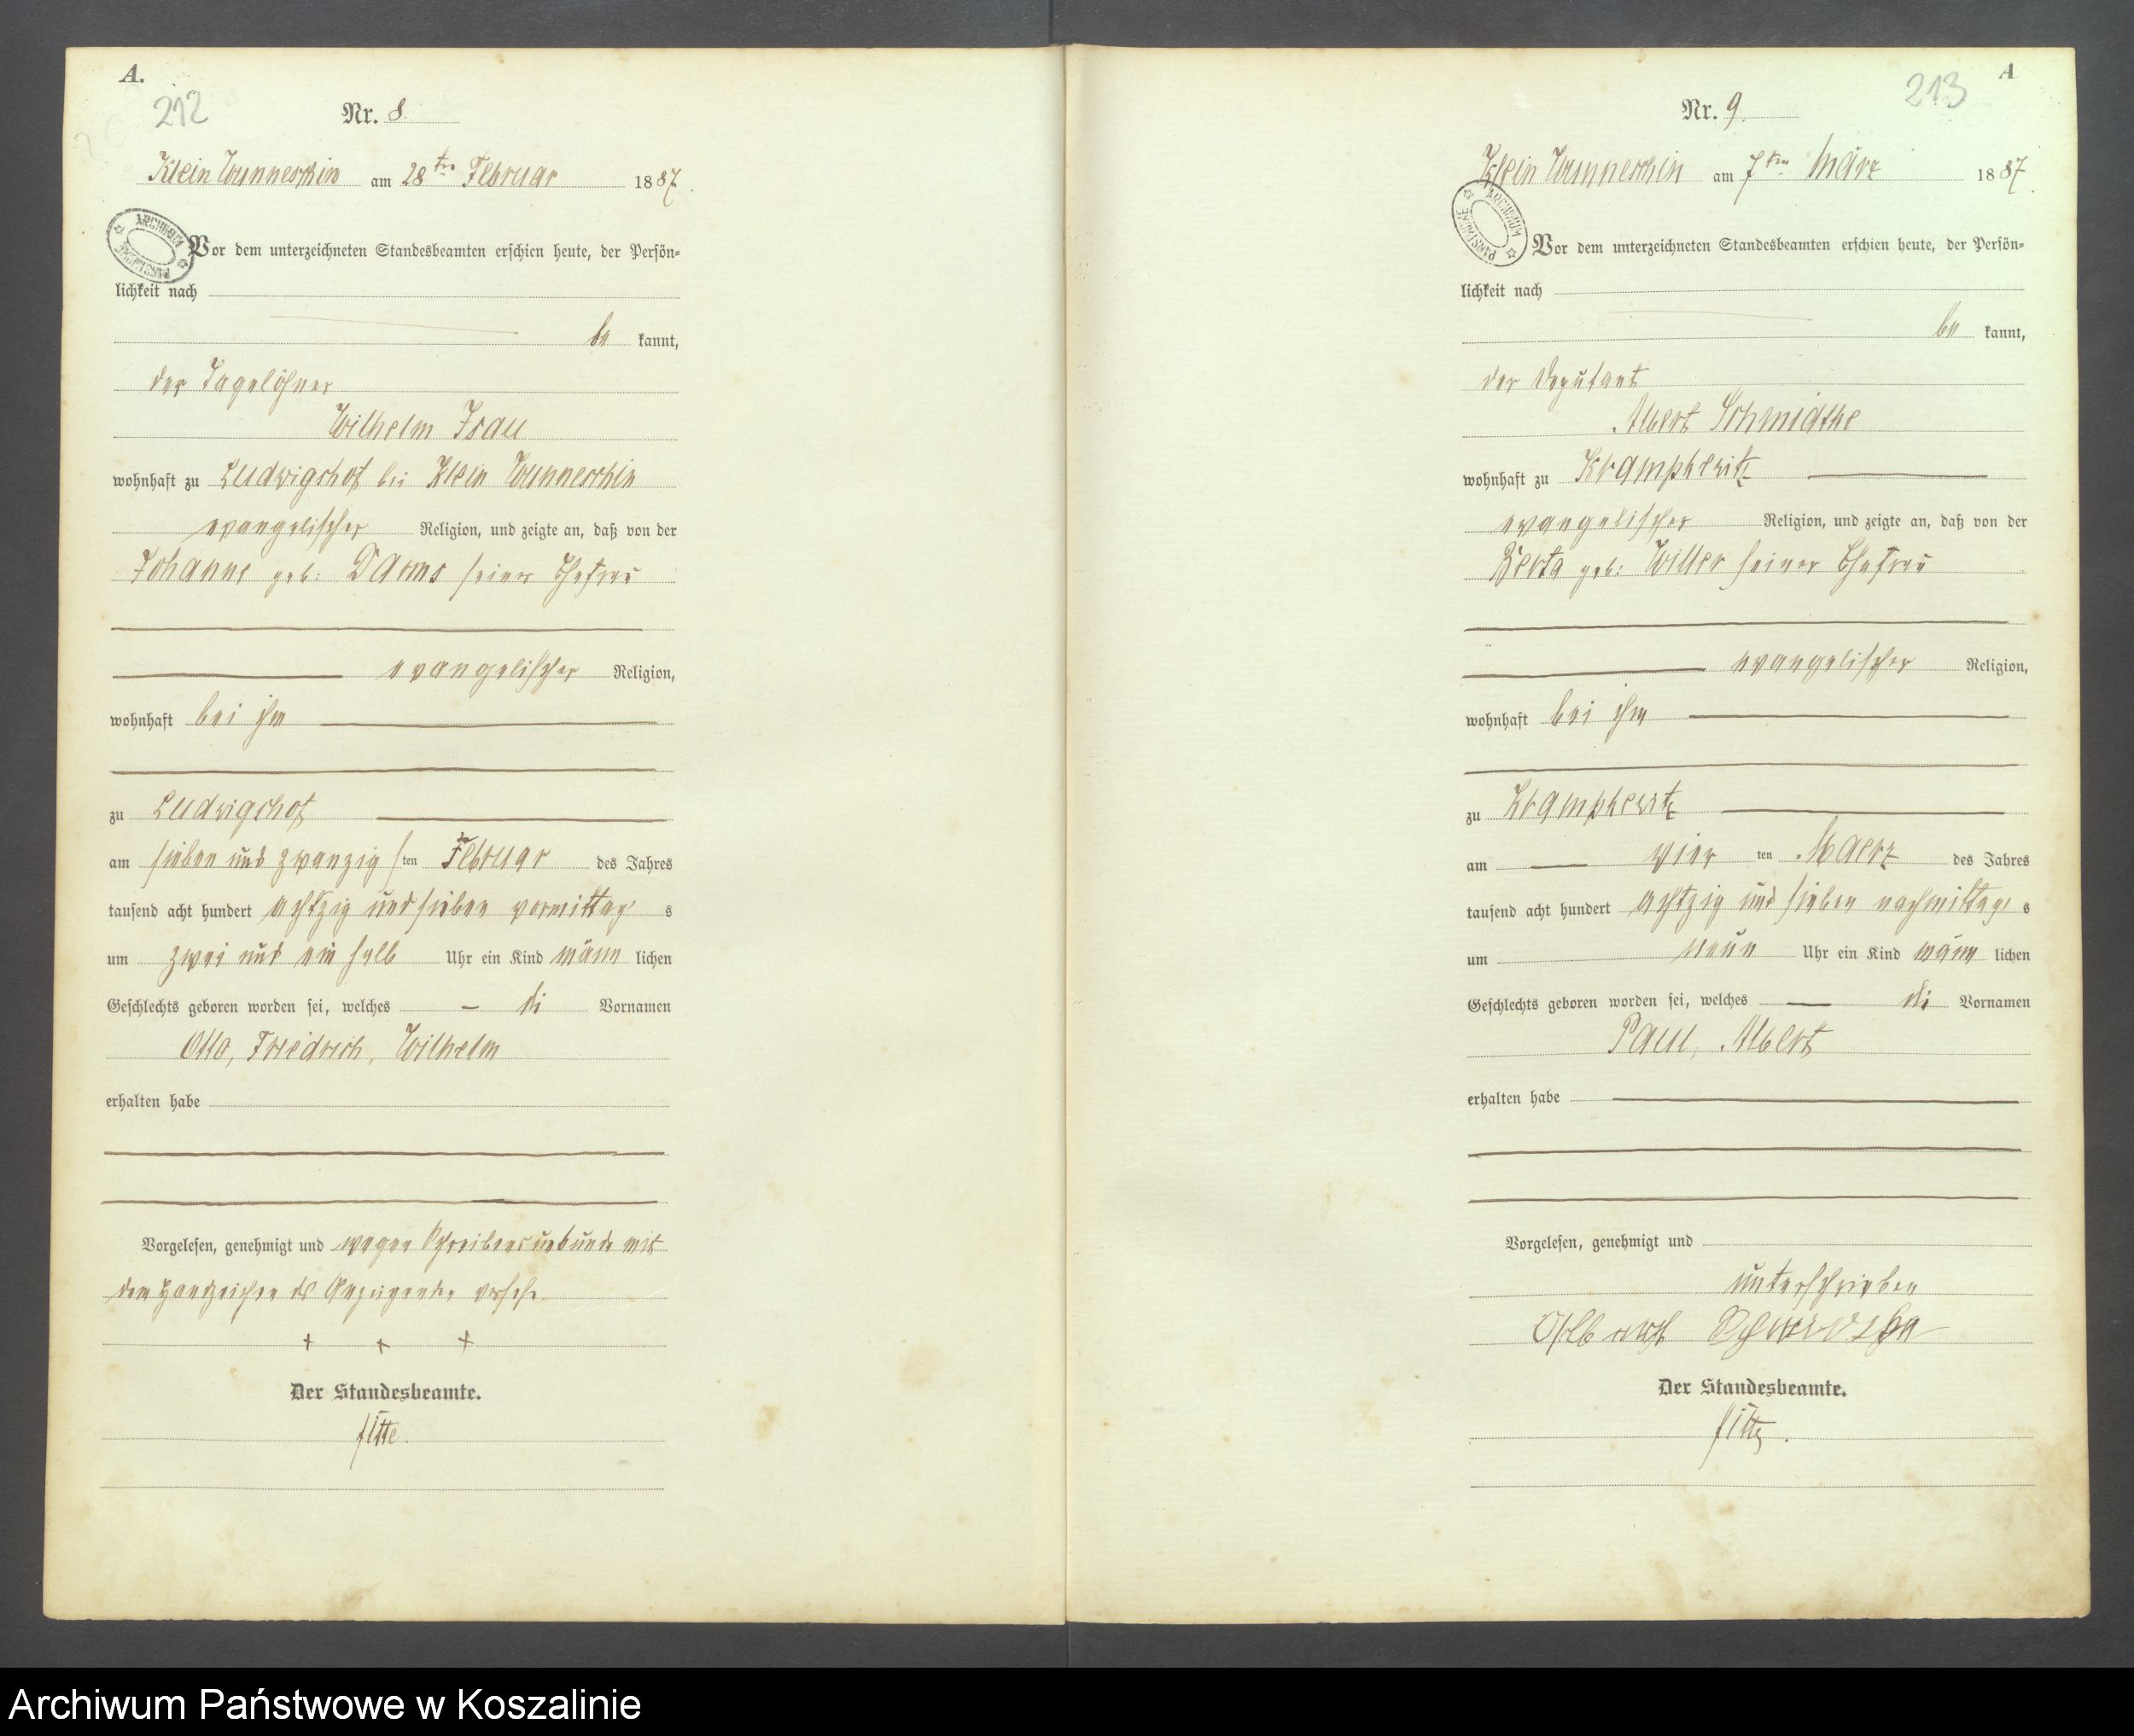 A.
212
Nr. 8.
Klein Wunneschin am 28ten Februar 1887.
ARCHIWUM PAŃSTWOWE
Vor dem unterzeichneten Standesbeamten erschien heute, der Persön-
lichkeit nach
be kannt,
der Tagelöhner
Wilhelm Isau
wohnhaft zu Ludwigshof bei Klein Wunneschin
evangelischer Religion, und zeigte an, daß von der
Johanne geb: Darms seiner Ehefrau
evangelischer Religion,
wohnhaft bei ihm
zu Ludwigshof
am sieben und zwanzig sten Februar des Jahres
tausend acht hundert achtzig und sieben vormittag s
um zwei und ein halb Uhr ein Kind männ lichen
Geschlechts geboren worden sei, welches di Vornamen
Otto, Friedrich, Wilhelm
erhalten habe
Vorgelesen, genehmigt und wegen Schreibensunkunde mit
dem Handzeichen des Anzeigenden versehen
+ + +
Der Standesbeamte.
A
213
Nr. 9.
Klein Wunneschin am 7ten März 1887.
ARCHIWUM PAŃSTWOWE
Vor dem unterzeichneten Standesbeamten erschien heute, der Persön-
lichkeit nach
be kannt,
der Deputant
Albert Schmidtke
wohnhaft zu Krampkewitz
evangelischer Religion, und zeigte an, daß von der
Berta geb: Willer seiner Ehefrau
evangelischer Religion,
wohnhaft bei ihm
zu Krampkewitz
am vier ten Maerz des Jahres
tausend acht hundert achtzig und sieben nachmittag s
um neun Uhr ein Kind männ lichen
Geschlechts geboren worden sei, welches di Vornamen
Paul, Albert
erhalten habe
Vorgelesen, genehmigt und
unterschrieben
Der Standesbeamte.
Archiwum Państwowe w Koszalinie